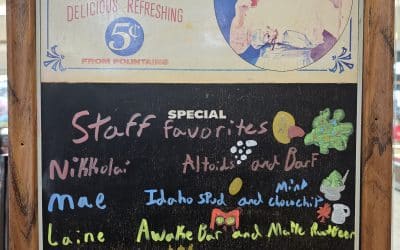 DELICIOUS REFRESHING
5¢
FROM FOUNTAINS
SPECIAL
Staff favorites
Nikkolai Altoids and Barf
Mae Idaho spud and Mind chocochip
Laine Awake Bar and Malk Rootbeer